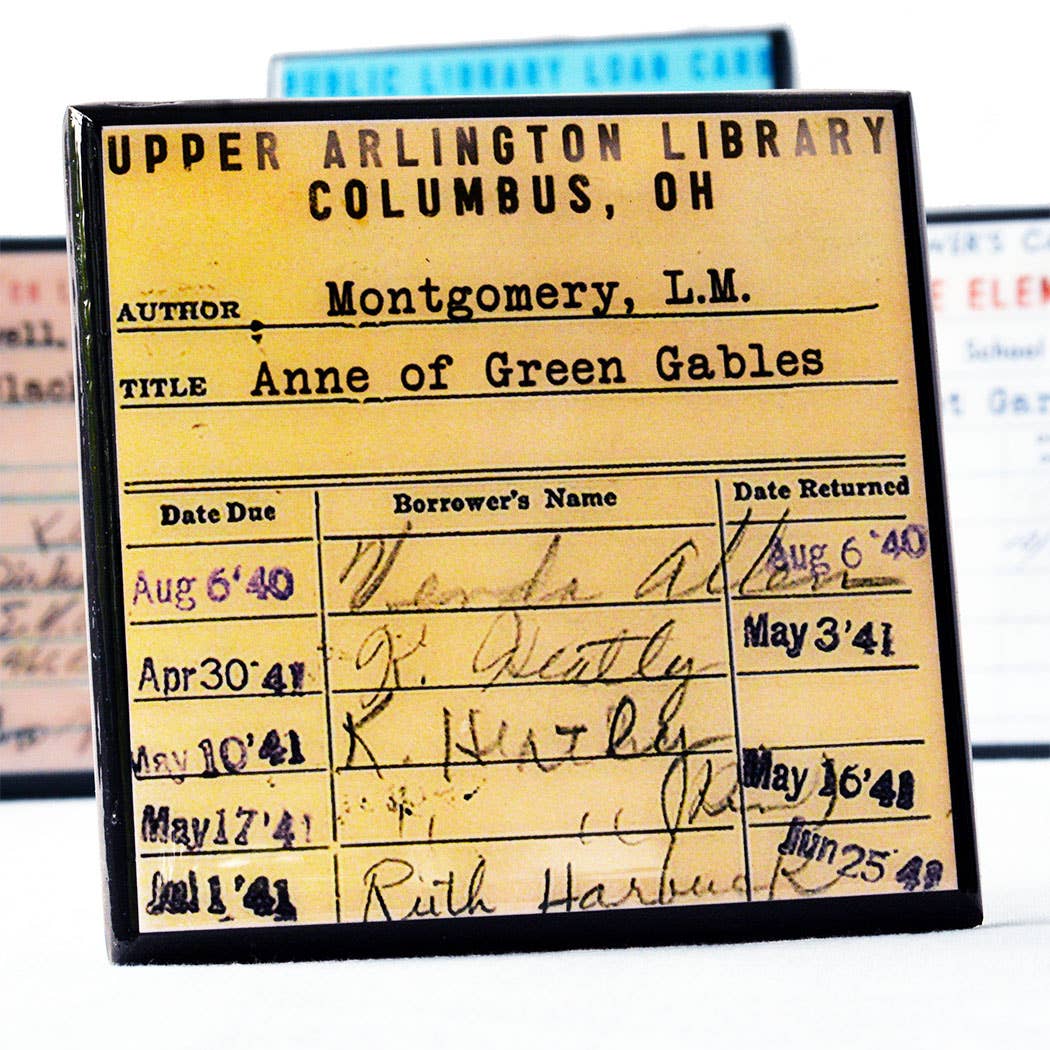 PUBLIC LIBRARY LOAN CARD
UPPER ARLINGTON LIBRARY
COLUMBUS, OH
AUTHOR Montgomery, L.M.
TITLE Anne of Green Gables
Date Due Borrower's Name Date Returned
Aug 6'40 Venda Allen Aug 6'40
Apr 30'41 K. Heatly May 3'41
May 10'41 K. Heatley
May 17'41 " " May 16'41
Jul 1'41 Ruth Jun 25'41
School